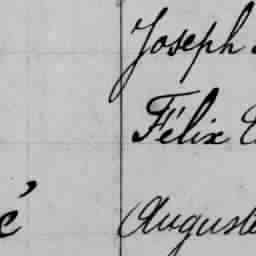 Joseph
Félix
Auguste